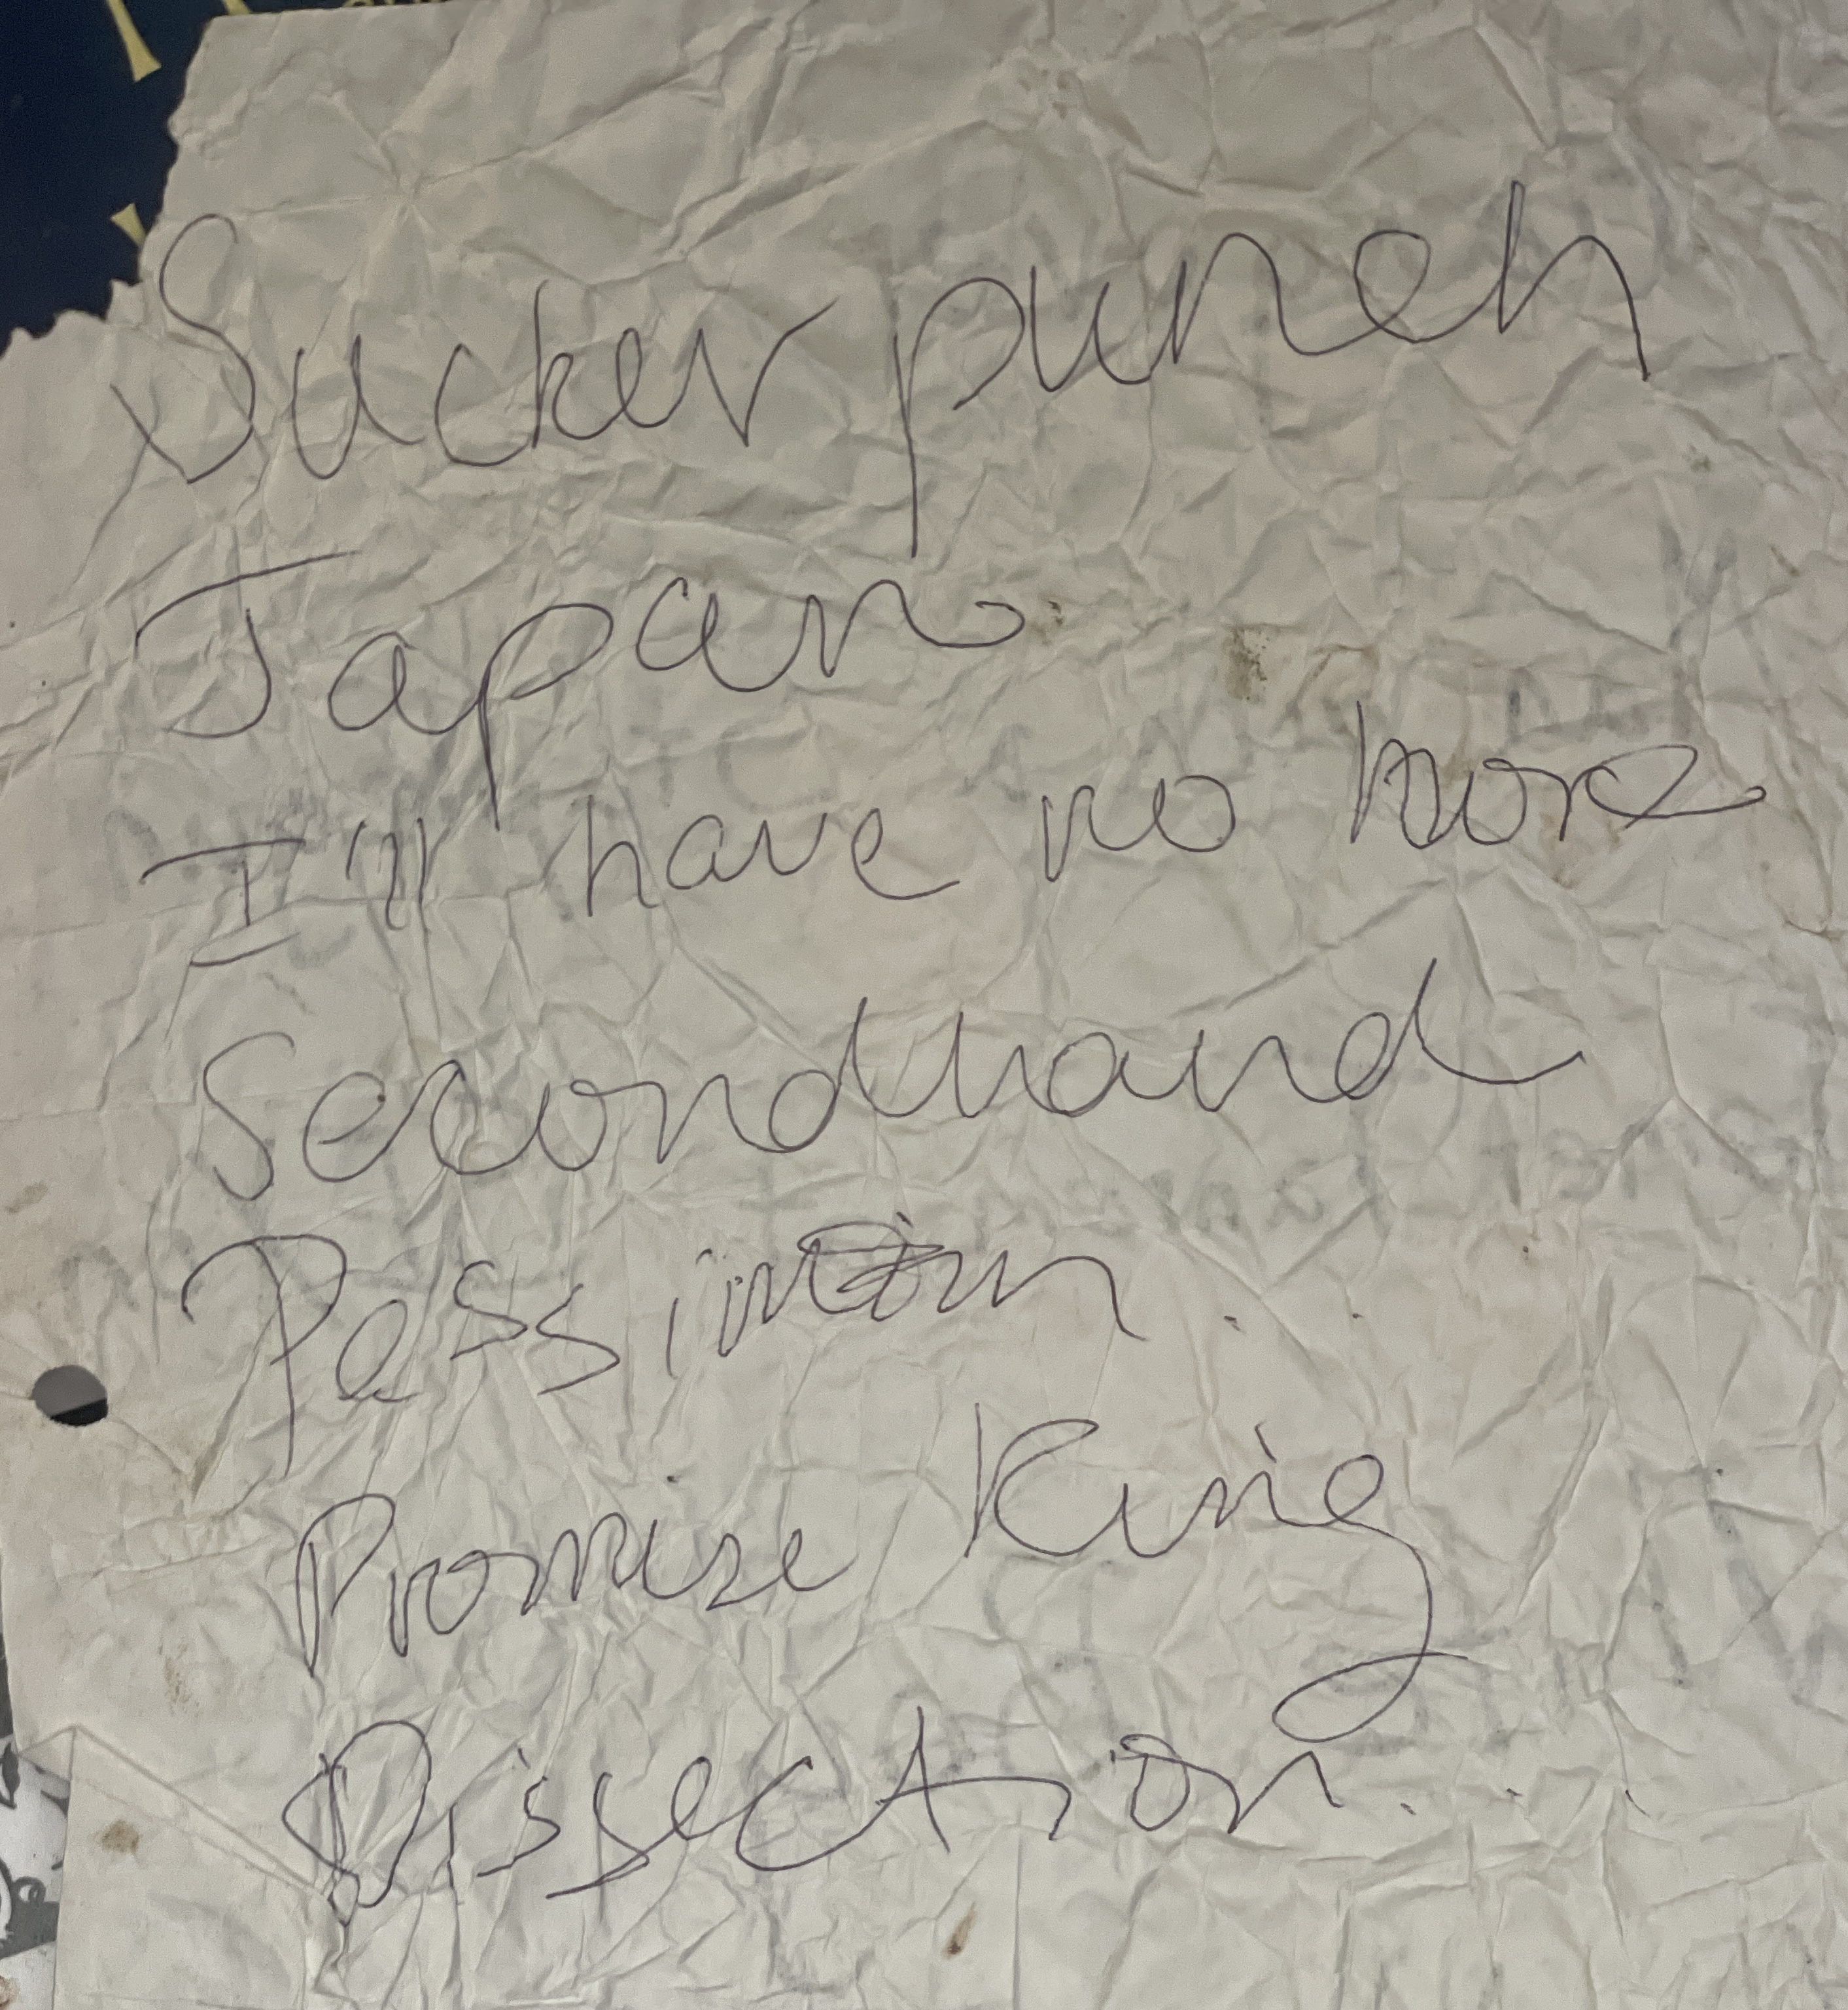 Sucker punch
Japan
I'll have no more
Secondhand
Pessimism
Promise King
Dissection.